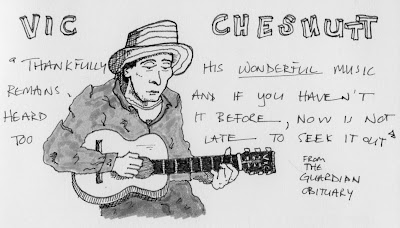 VIC CHESNUTT
"THANKFULLY HIS WONDERFUL MUSIC
REMANS AND IF YOU HAVEN'T
HEARD IT BEFORE, NOW IS NOT
TOO LATE TO SEEK IT OUT"
FROM
THE
GUARDIAN
OBITUARY